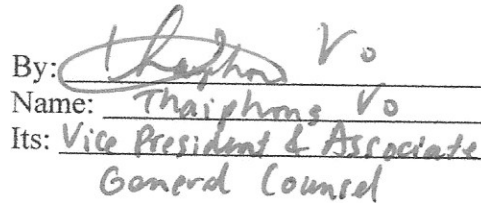 By: Thaiphong Vo
Name: Thaiphong Vo
Its: Vice President & Associate
General Counsel